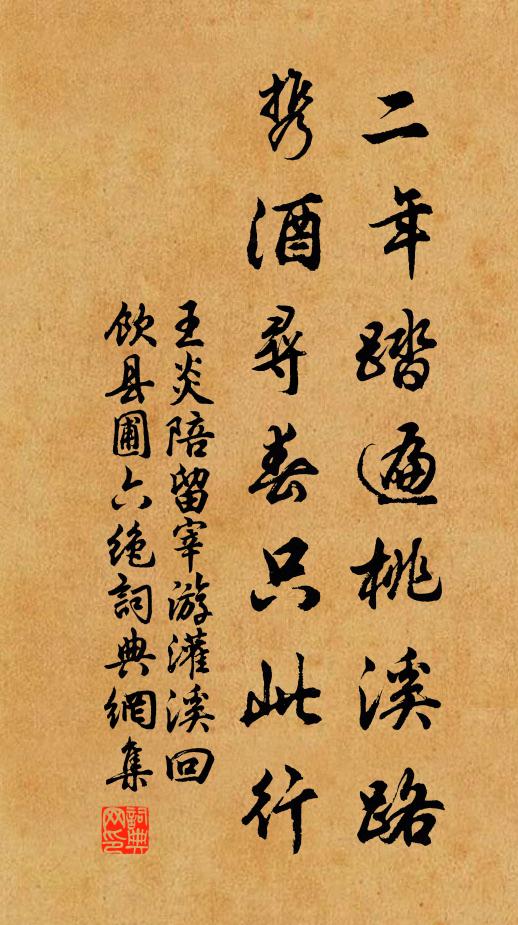 二年踏遍桃溪路
携酒寻春只此行
王炎陪留宰游灌溪回
饮县圃六绝詞典網集
詞典网印